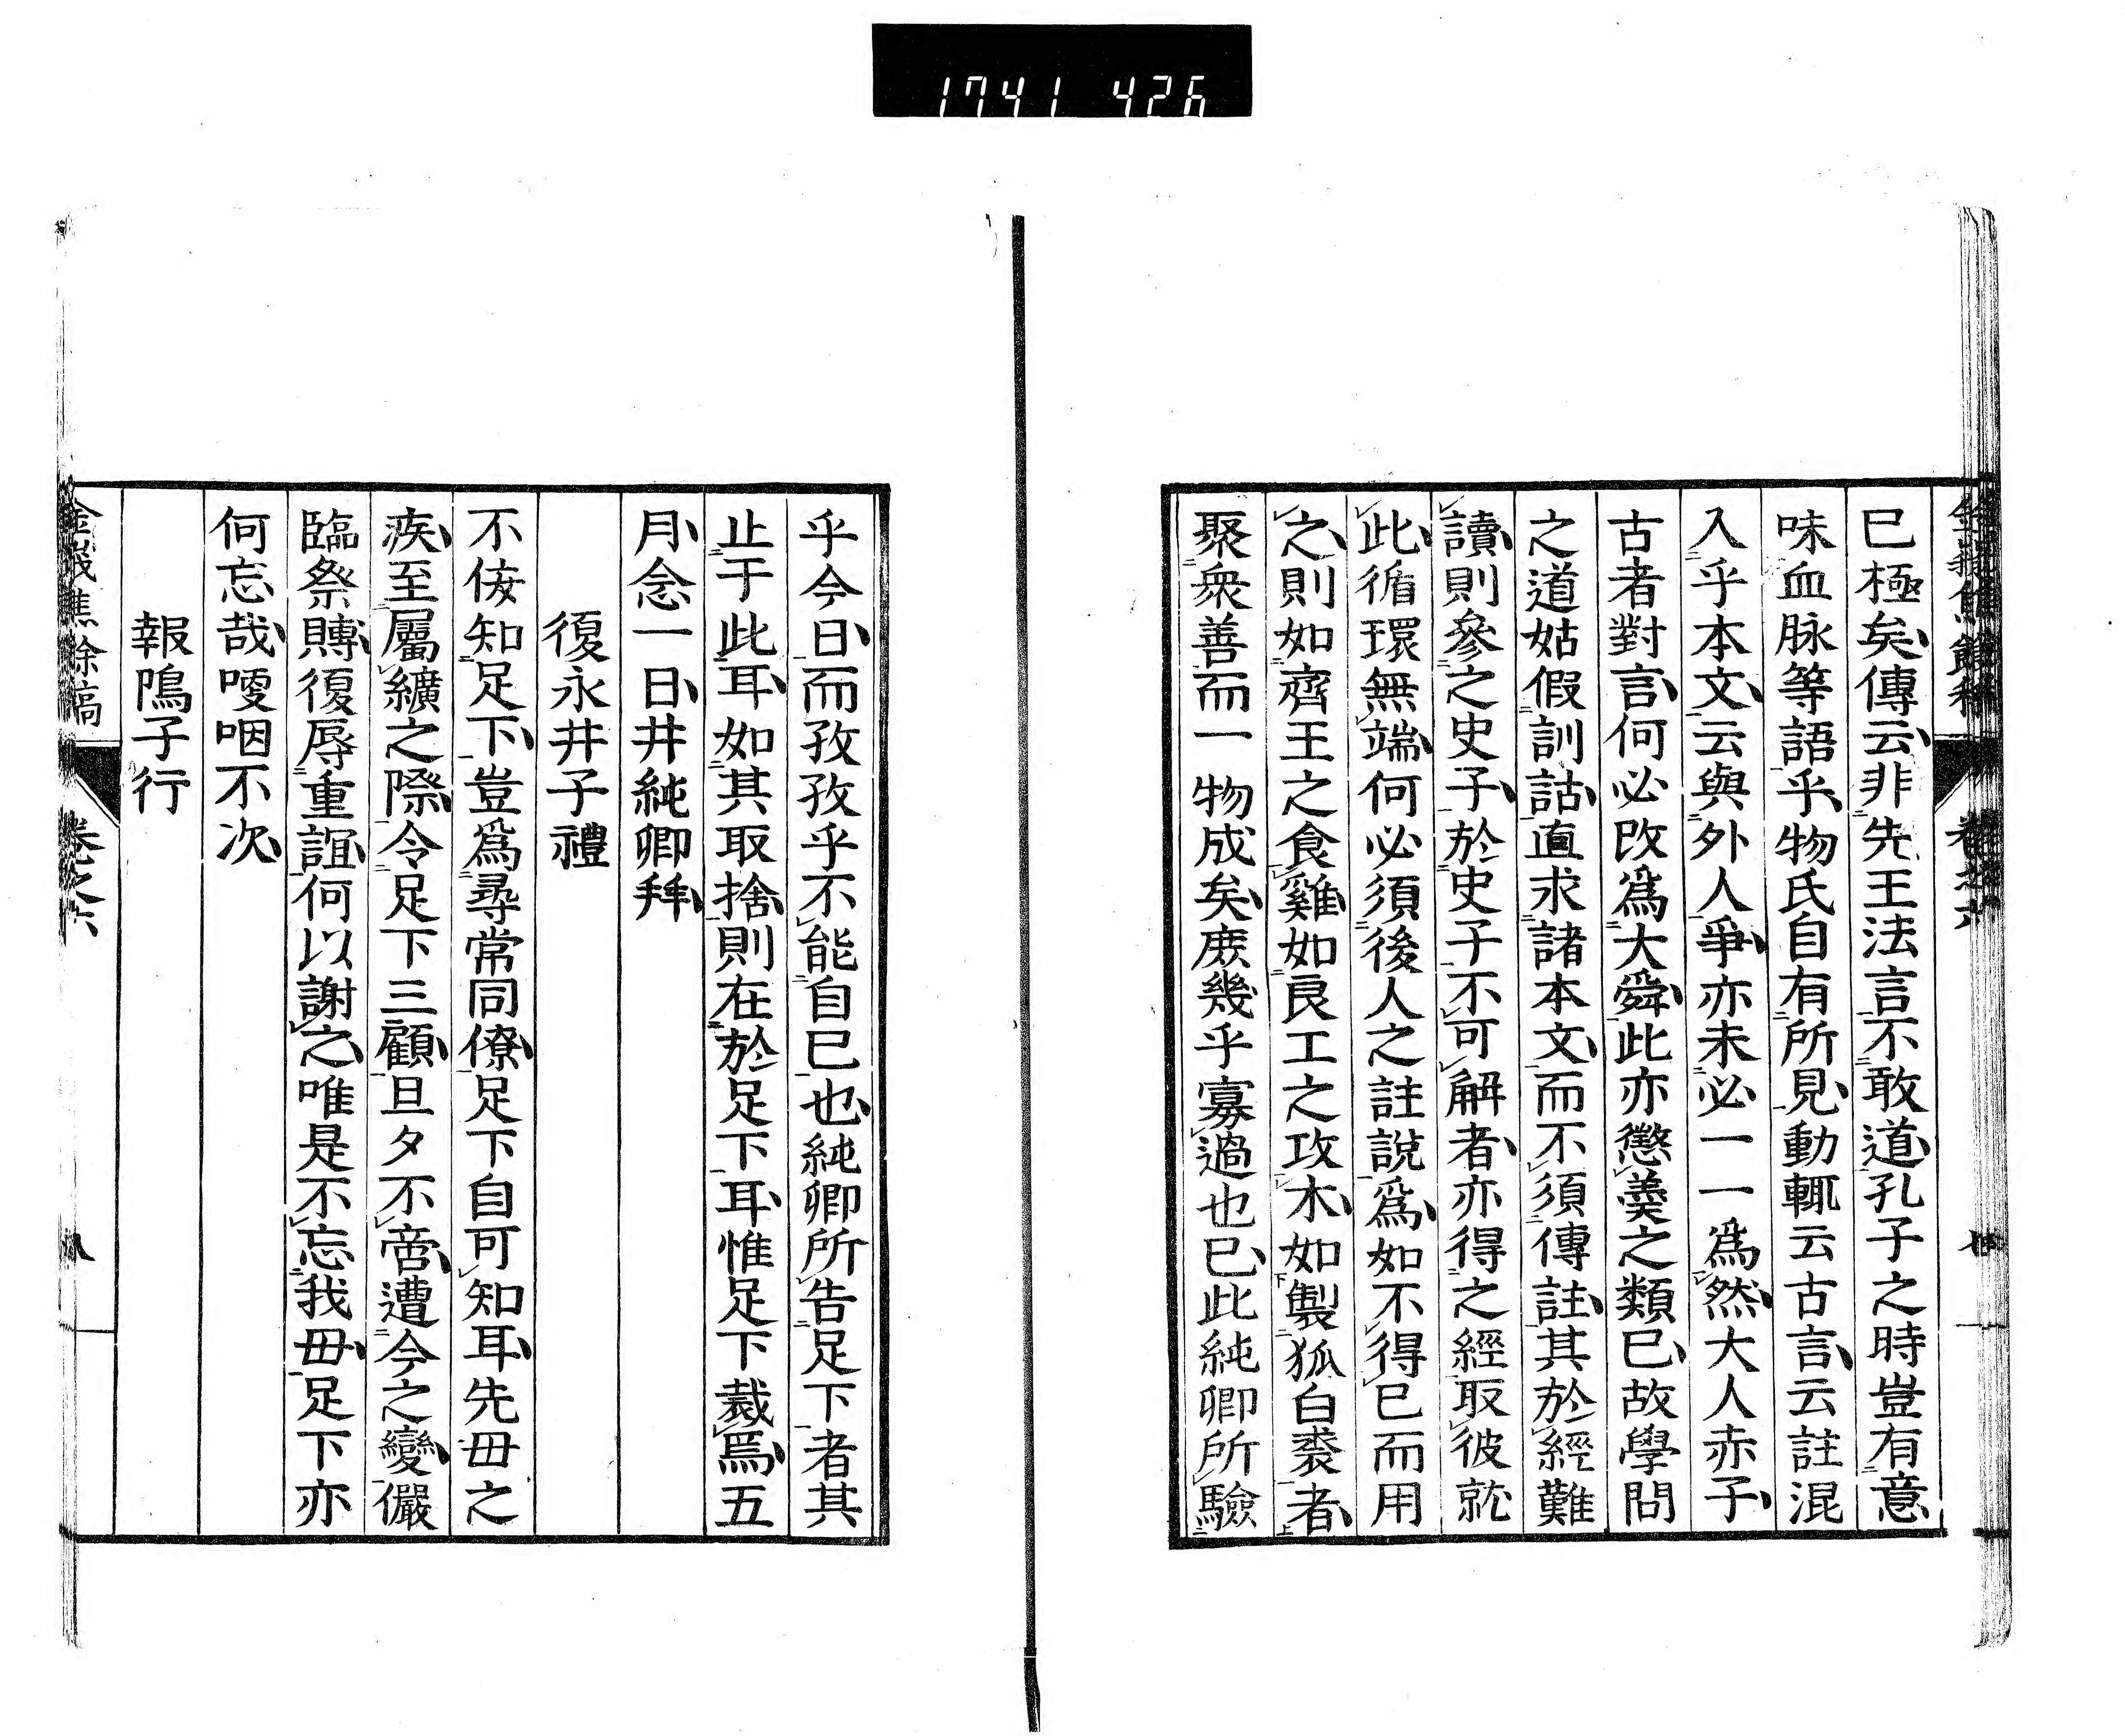 1741 426
已極矣傳云非先王法言不敢道孔子之時豈有意
味血脉等語乎物氏自有所見動輒云古言云註混
入乎本文云與外人爭亦未必一一爲然大人赤子
古者對言何必改爲大舜此亦懲羹之類已故學問
之道姑假訓詁直求諸本文而不須傳註其於經難
讀則參之史子於史子不可解者亦得之經取彼就
此循環無端何必須後人之註說爲如不得已而用
之則如齊王之食雞如良工之攻木如製狐白裘者
聚衆善而一物成矣庶幾乎寡過也已此純卿所驗
乎今日而孜孜乎不能自已也純卿所告足下者其
止于此耳如其取捨則在於足下耳惟足下裁焉五
月念一日井純卿拜
復永井子禮
不侫知足下豈爲尋常同僚足下自可知耳先毋之
疾至屬纊之際令足下三顧旦夕不啻遭今之變儼
臨祭賻復辱重誼何以謝之唯是不忘我毋足下亦
何忘哉嚘咽不次
報鳴子行
金峩焦餘稿 卷之六 八